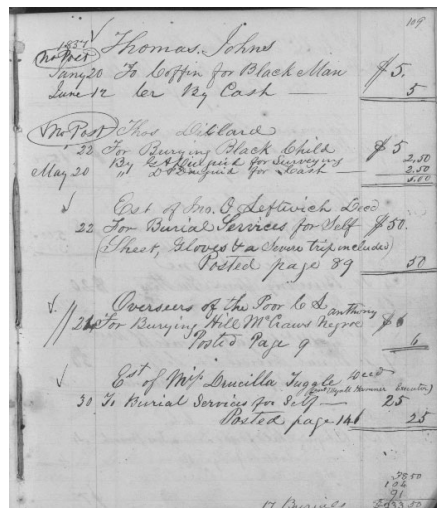 109
1857 Thomas Johns
No Post
Jany 20 To Coffin for Black Man $5.
June 12 Cr By Cash — 5
No Post Thos Dillard
" 22 For Burying Black Child $5
By for Surveying 2,50
May 20 " for Cash — 2,50
5,00
Est of Jno. O Leftwich Decd
22 For Burial Services for Self $50.
(Sheet, Gloves & a Severe trip included)
Posted page 89 50
Overseers of the Poor C &
anthony
21 For Burying Hill McCraws Negroe $6
Posted Page 9 6
Est of Miss Drucilla Tuggle Decd
30 To Burial Services for Self — 25
Posted page 141 25
78.50
104
91
17 Burials